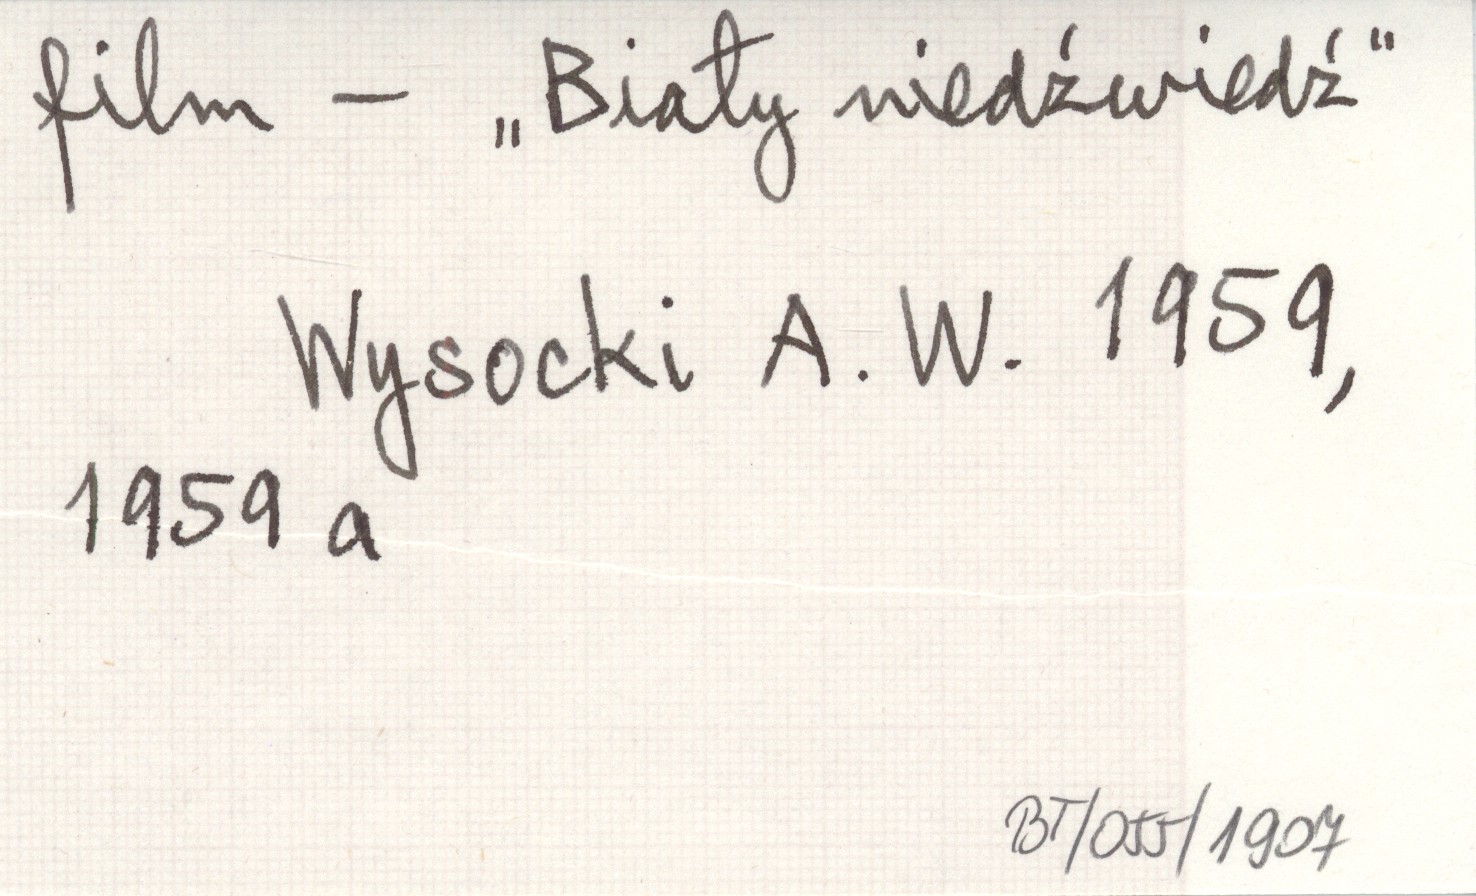 film – „Biały niedźwiedź“
Wysocki A. W. 1959,
1959 a
BT/055/1907